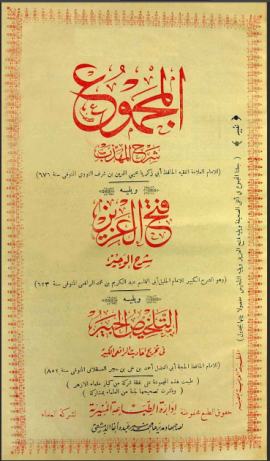 المجموع
شرح المهذب
للامام العلامة الفقيه الحافظ أبى زكريا محيى الدين بن شرف النووى المتوفى سنة ٦٧٦
ويليه
فتح العزيز
شرح الوجيز
وهو الشرح الكبير للامام الجليل أبى القاسم عبد الكريم بن محمد الرافعى المتوفى سنة ٦٢٣
ويليه
التلخيص الحبير
فى تخريج أحاديث الرافعى الكبير
للامام الحافظ الحجة أبى الفضل أحمد بن على بن حجر العسقلانى المتوفى سنة ٨٥٢
طبعت هذه المجموعة على نفقة شركة من كبار علماء الازهر
حقوق الطبع محفوظة
إدارة الطباعة المنيرية
لشركة العلماء
تنبيه